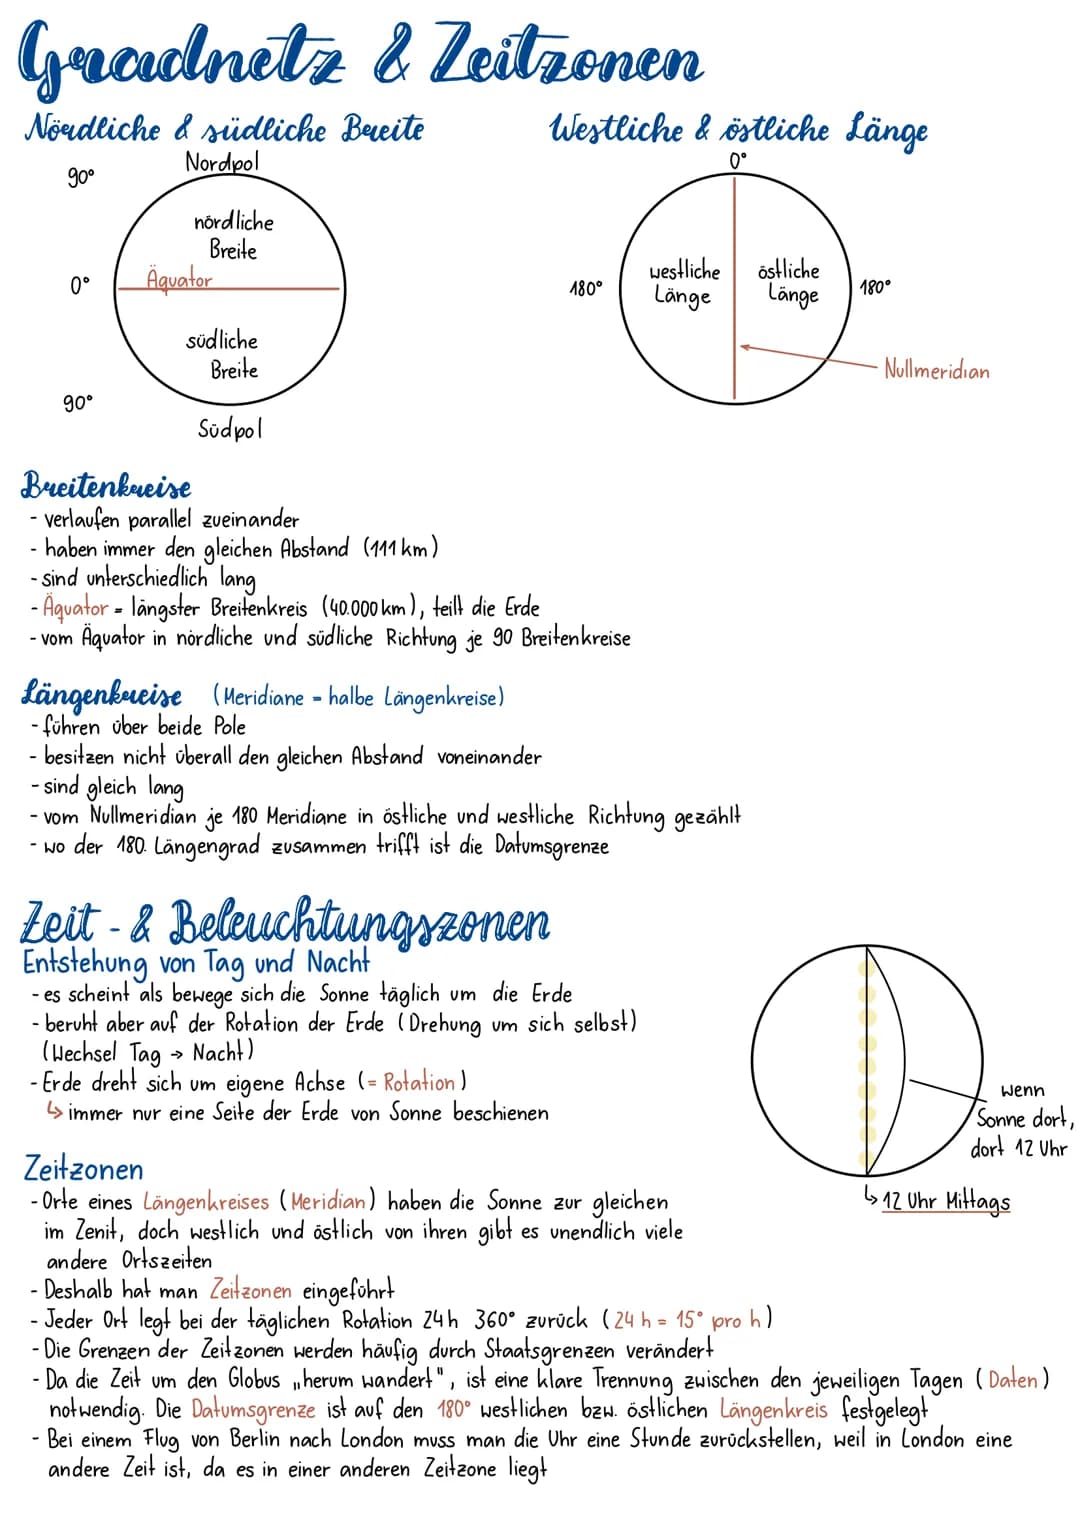 Gradnetz & Zeitzonen
Nördliche & südliche Breite
Westliche & östliche Länge
Nordpol
90°
nördliche
Breite
0°
Äquator
südliche
Breite
90°
Südpol
0°
westliche
Länge
östliche
Länge
180°
180°
Nullmeridian
Breitenkreise
- verlaufen parallel zueinander
- haben immer den gleichen Abstand (111 km)
- sind unterschiedlich lang
- Äquator = längster Breitenkreis (40.000 km), teilt die Erde
- vom Äquator in nördliche und südliche Richtung je 90 Breitenkreise
Längenkreise (Meridiane = halbe Längenkreise)
- führen über beide Pole
- besitzen nicht überall den gleichen Abstand voneinander
- sind gleich lang
- vom Nullmeridian je 180 Meridiane in östliche und westliche Richtung gezählt
- wo der 180. Längengrad zusammen trifft ist die Datumsgrenze
Zeit - & Beleuchtungszonen
Entstehung von Tag und Nacht
- es scheint als bewege sich die Sonne täglich um die Erde
- beruht aber auf der Rotation der Erde (Drehung um sich selbst)
(Wechsel Tag → Nacht)
- Erde dreht sich um eigene Achse (= Rotation)
↳ immer nur eine Seite der Erde von Sonne beschienen
wenn
Sonne dort,
dort 12 Uhr
↳ 12 Uhr Mittags
Zeitzonen
- Orte eines Längenkreises (Meridian) haben die Sonne zur gleichen
im Zenit, doch westlich und östlich von ihren gibt es unendlich viele
andere Ortszeiten
- Deshalb hat man Zeitzonen eingeführt
- Jeder Ort legt bei der täglichen Rotation 24h 360° zurück (24 h = 15° pro h)
- Die Grenzen der Zeitzonen werden häufig durch Staatsgrenzen verändert
- Da die Zeit um den Globus „herum wandert", ist eine klare Trennung zwischen den jeweiligen Tagen (Daten)
notwendig. Die Datumsgrenze ist auf den 180° westlichen bzw. östlichen Längenkreis festgelegt
- Bei einem Flug von Berlin nach London muss man die Uhr eine Stunde zurückstellen, weil in London eine
andere Zeit ist, da es in einer anderen Zeitzone liegt